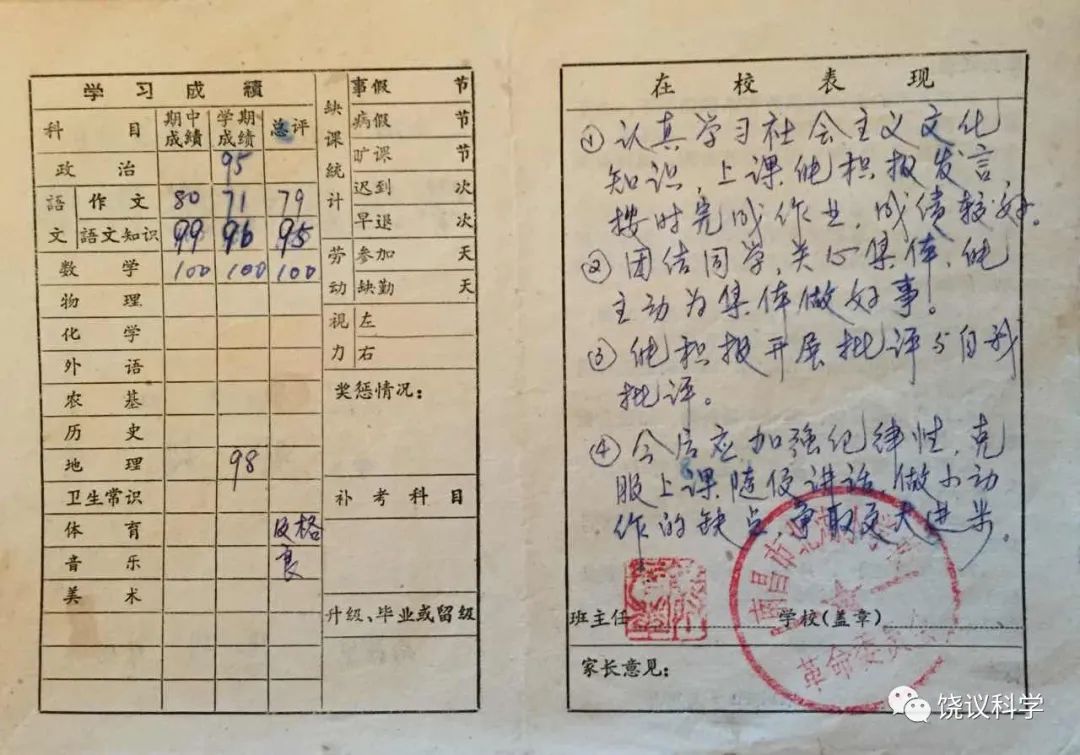 学习成績
科目 期中成績 学期成绩 总评
政治 95
語文 作文 80 71 79
語文知识 99 96 95
数学 100 100 100
物理
化学
外语
农基
历史
地理 98
卫生常识
体育 及格
音乐 良
美术
缺课統计
事假 节
病假 节
旷课 节
迟到 次
早退 次
劳动
参加 天
缺勤 天
视力
左
右
奖惩情况：
补考科目
升级、毕业或留级
在校表现
①认真学习社会主义文化
知识，上课能积极发言，
按时完成作业，成绩较好。
②团结同学，关心集体，能
主动为集体做好事。
③能积极开展批评与自我
批评。
④今后应加强纪律性，克
服上课随便讲话，做小动
作的缺点，争取更大进步。
班主任 学校（盖章）
南昌市北湖小学
革命委员会
家长意见：
饶议科学